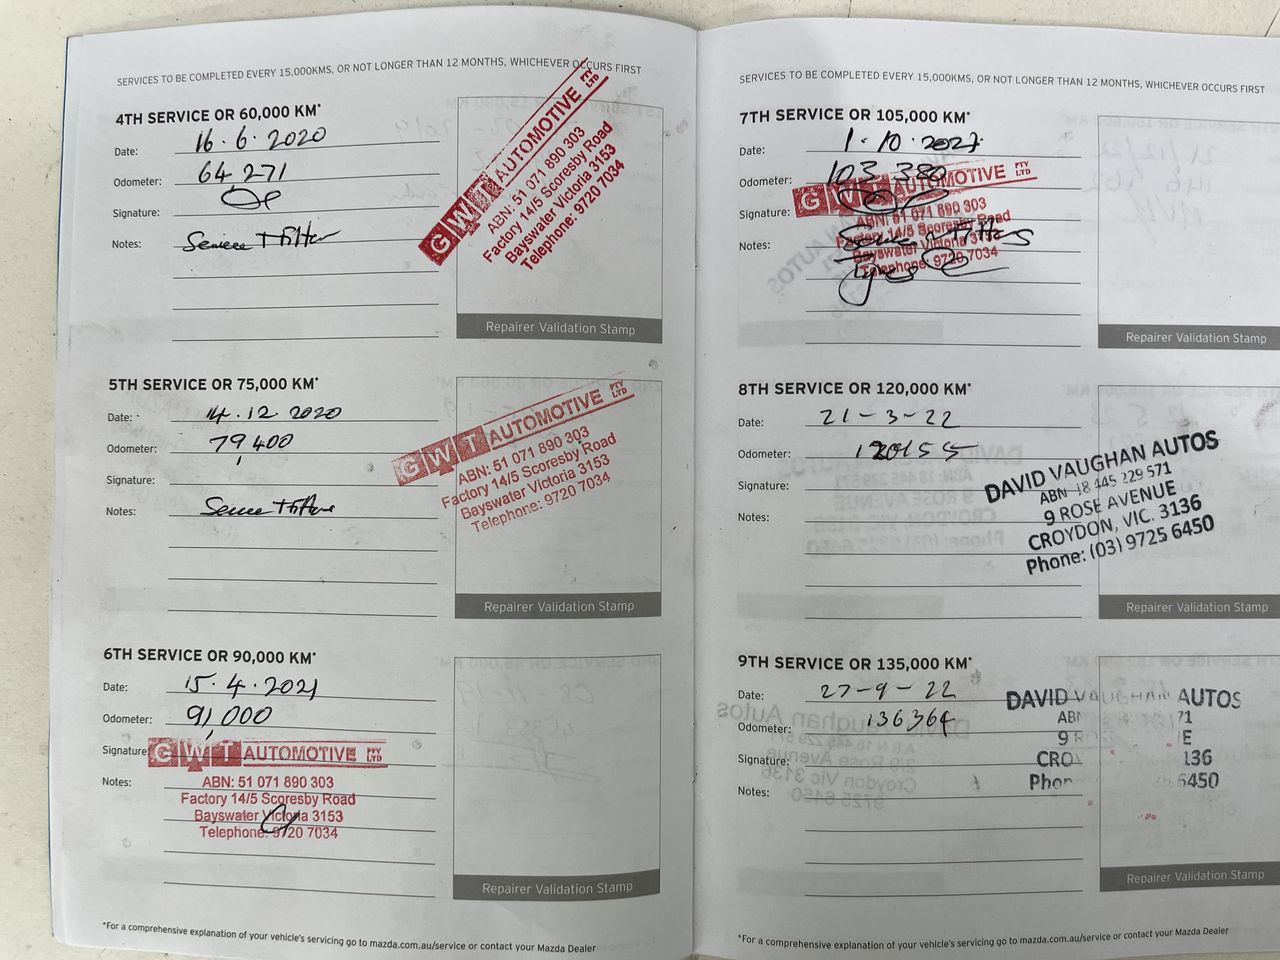 SERVICES TO BE COMPLETED EVERY 15,000KMS, OR NOT LONGER THAN 12 MONTHS, WHICHEVER OCCURS FIRST
4TH SERVICE OR 60,000 KM*
Date: 16.6.2020
Odometer: 64 271
Signature:
Notes: Service + Filter
GWT AUTOMOTIVE PTY LTD
ABN: 51 071 890 303
Factory 14/5 Scoresby Road
Bayswater Victoria 3153
Telephone: 9720 7034
Repairer Validation Stamp
5TH SERVICE OR 75,000 KM*
Date: 14.12 2020
Odometer: 79,400
Signature:
Notes: Service + Filter
GWT AUTOMOTIVE PTY LTD
ABN: 51 071 890 303
Factory 14/5 Scoresby Road
Bayswater Victoria 3153
Telephone: 9720 7034
Repairer Validation Stamp
6TH SERVICE OR 90,000 KM*
Date: 15.4.2021
Odometer: 91,000
Signature:
GWT AUTOMOTIVE PTY LTD
Notes:
ABN: 51 071 890 303
Factory 14/5 Scoresby Road
Bayswater Victoria 3153
Telephone: 9720 7034
Repairer Validation Stamp
*For a comprehensive explanation of your vehicle's servicing go to mazda.com.au/service or contact your Mazda Dealer
SERVICES TO BE COMPLETED EVERY 15,000KMS, OR NOT LONGER THAN 12 MONTHS, WHICHEVER OCCURS FIRST
7TH SERVICE OR 105,000 KM*
Date: 1.10.2021
Odometer: 103 380
GWT AUTOMOTIVE PTY LTD
Signature:
ABN: 51 071 890 303
Factory 14/5 Scoresby Road
Notes:
Bayswater Victoria 3153
Telephone: 9720 7034
Repairer Validation Stamp
8TH SERVICE OR 120,000 KM*
Date: 21-3-22
Odometer: 120155
Signature:
Notes:
DAVID VAUGHAN AUTOS
ABN 18 445 229 571
9 ROSE AVENUE
CROYDON, VIC. 3136
Phone: (03) 9725 6450
Repairer Validation Stamp
9TH SERVICE OR 135,000 KM*
Date: 27-9-22
Odometer: 136364
Signature:
Notes:
DAVID VAUGHAN AUTOS
ABN 71
9 E
CRO 136
Phon 6450
Repairer Validation Stamp
*For a comprehensive explanation of your vehicle's servicing go to mazda.com.au/service or contact your Mazda Dealer